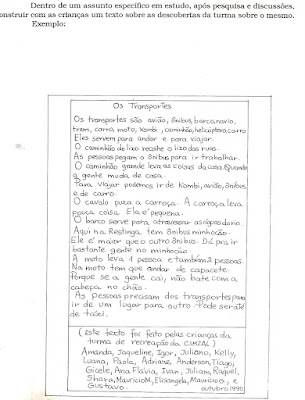 Dentro de um assunto específico em estudo, após pesquisa e discussões,
onstruir com as crianças um texto sobre as descobertas da turma sobre o mesmo.
Exemplo:
Os Transportes
Os transportes são avião, ônibus, barco, navio,
trem, carro, moto, Kombi, caminhão, helicóptero, carro
Eles servem para andar e para viajar.
O caminhão do lixo recolhe o lixo das ruas.
As pessoas pegam o ônibus para ir trabalhar.
O caminhão grande leva as coisas da casa. Quando
a gente muda de casa.
Para viajar podemos ir de Kombi, avião, ônibus
e de carro.
O cavalo puxa a carroça. A carroça leva
pouca coisa. Ela é pequena.
O barco serve para atravessar as águas do rio
Aqui na Restinga, tem ônibus minhocão.
Ele é maior que o outro ônibus. Dá pra ir
bastante gente no minhocão.
A moto leva 1 pessoa e também 2 pessoas
Na moto tem que andar de capacete.
Porque se a gente cai, não bate com a
cabeça no chão.
As pessoas precisam dos transportes para
ir de um lugar para outro. Pode ser até
de táxi.
(Este texto foi feito pelas crianças da
turma de recreação da CUMZAL)
Amanda, Jaqueline, Igor, Juliano, Kelly,
Luana, Paola, Adriane, Anderson, Tiago,
Gicele, Ana Flávia, Ivan, Juliam, Raquel,
Shara, Maurício M, Elisangela, Maurício G, e
Gustavo.
outubro 1990